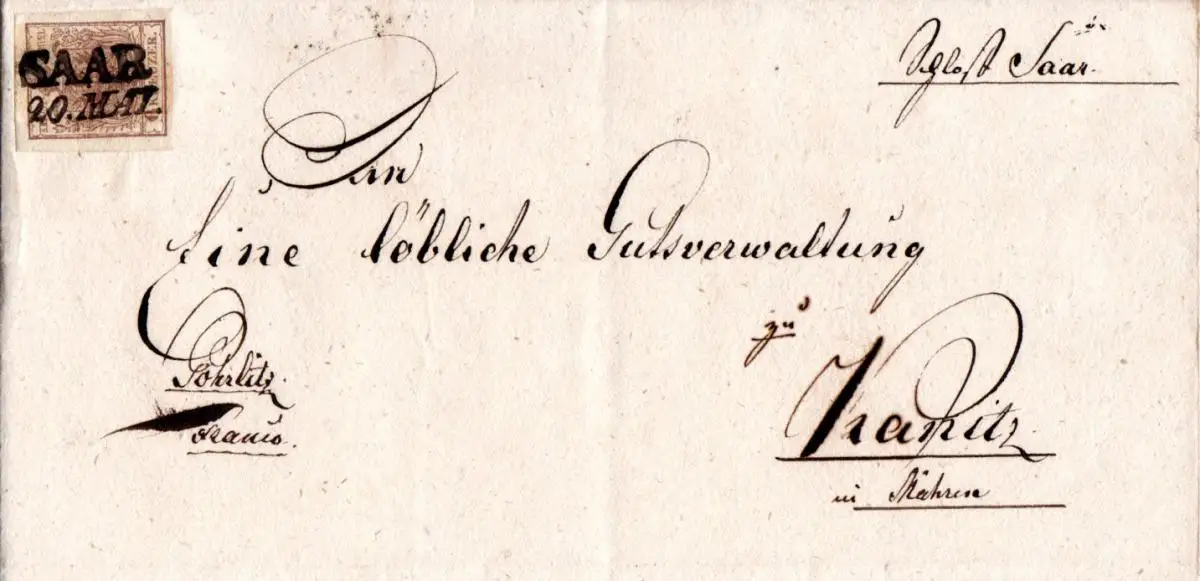 SAAR
20. MAI.
Schloß Saar.
An
Eine löbliche Gutsverwaltung
zu
Göhrlitz.
franco.
Kanitz
in Mähren